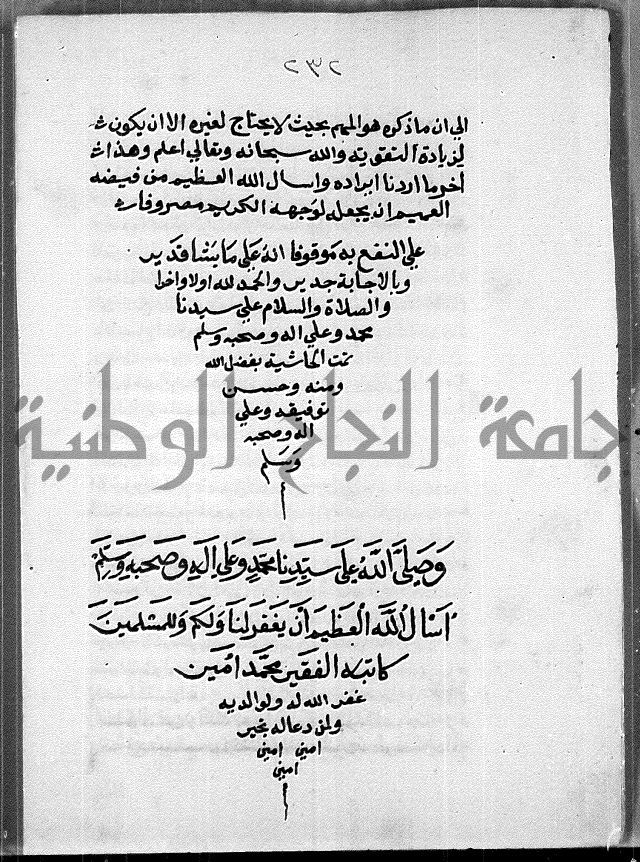 ٢٣٢
الي ان ماذكره هو المهم بحيث لايحتاج لغيره الا ان يكون
لزيادة التفقه والله سبحانه وتعالي اعلم وهذا
اخرما اردنا ايراده واسال الله العظيم من فيضه
العميم ان يجعله لوجهه الكريم مصروفا
علي النفع به موقوفا انه علي ما يشا قدير
وبالاجابة جدير والحمد لله اولا واخرا
والصلاة والسلام علي سيدنا
محمد وعلي اله وصحبه وسلم
تمت الحاشية بفضل الله
ومنه وحسن
توفيقه وعلي
اله وصحبه
وسلم
جامعة النجاح الوطنية
وَصَلَّى اللَّهُ عَلَى سَيِّدِنَا مُحَمَّدٍ وَعَلَى اٰلِهِ وَصَحْبِهِ وَسَلَّمْ
اَسْاَلُ اللَّهَ الْعَظِيْمَ اَنْ يَغْفِرَ لَنَا وَلَكُمْ وَلِلْمُسْلِمِيْنَ
كاتبه الفقير محمد امين
غفر الله له ولوالديه
ولمن دعاله بخير
امين امين
امين